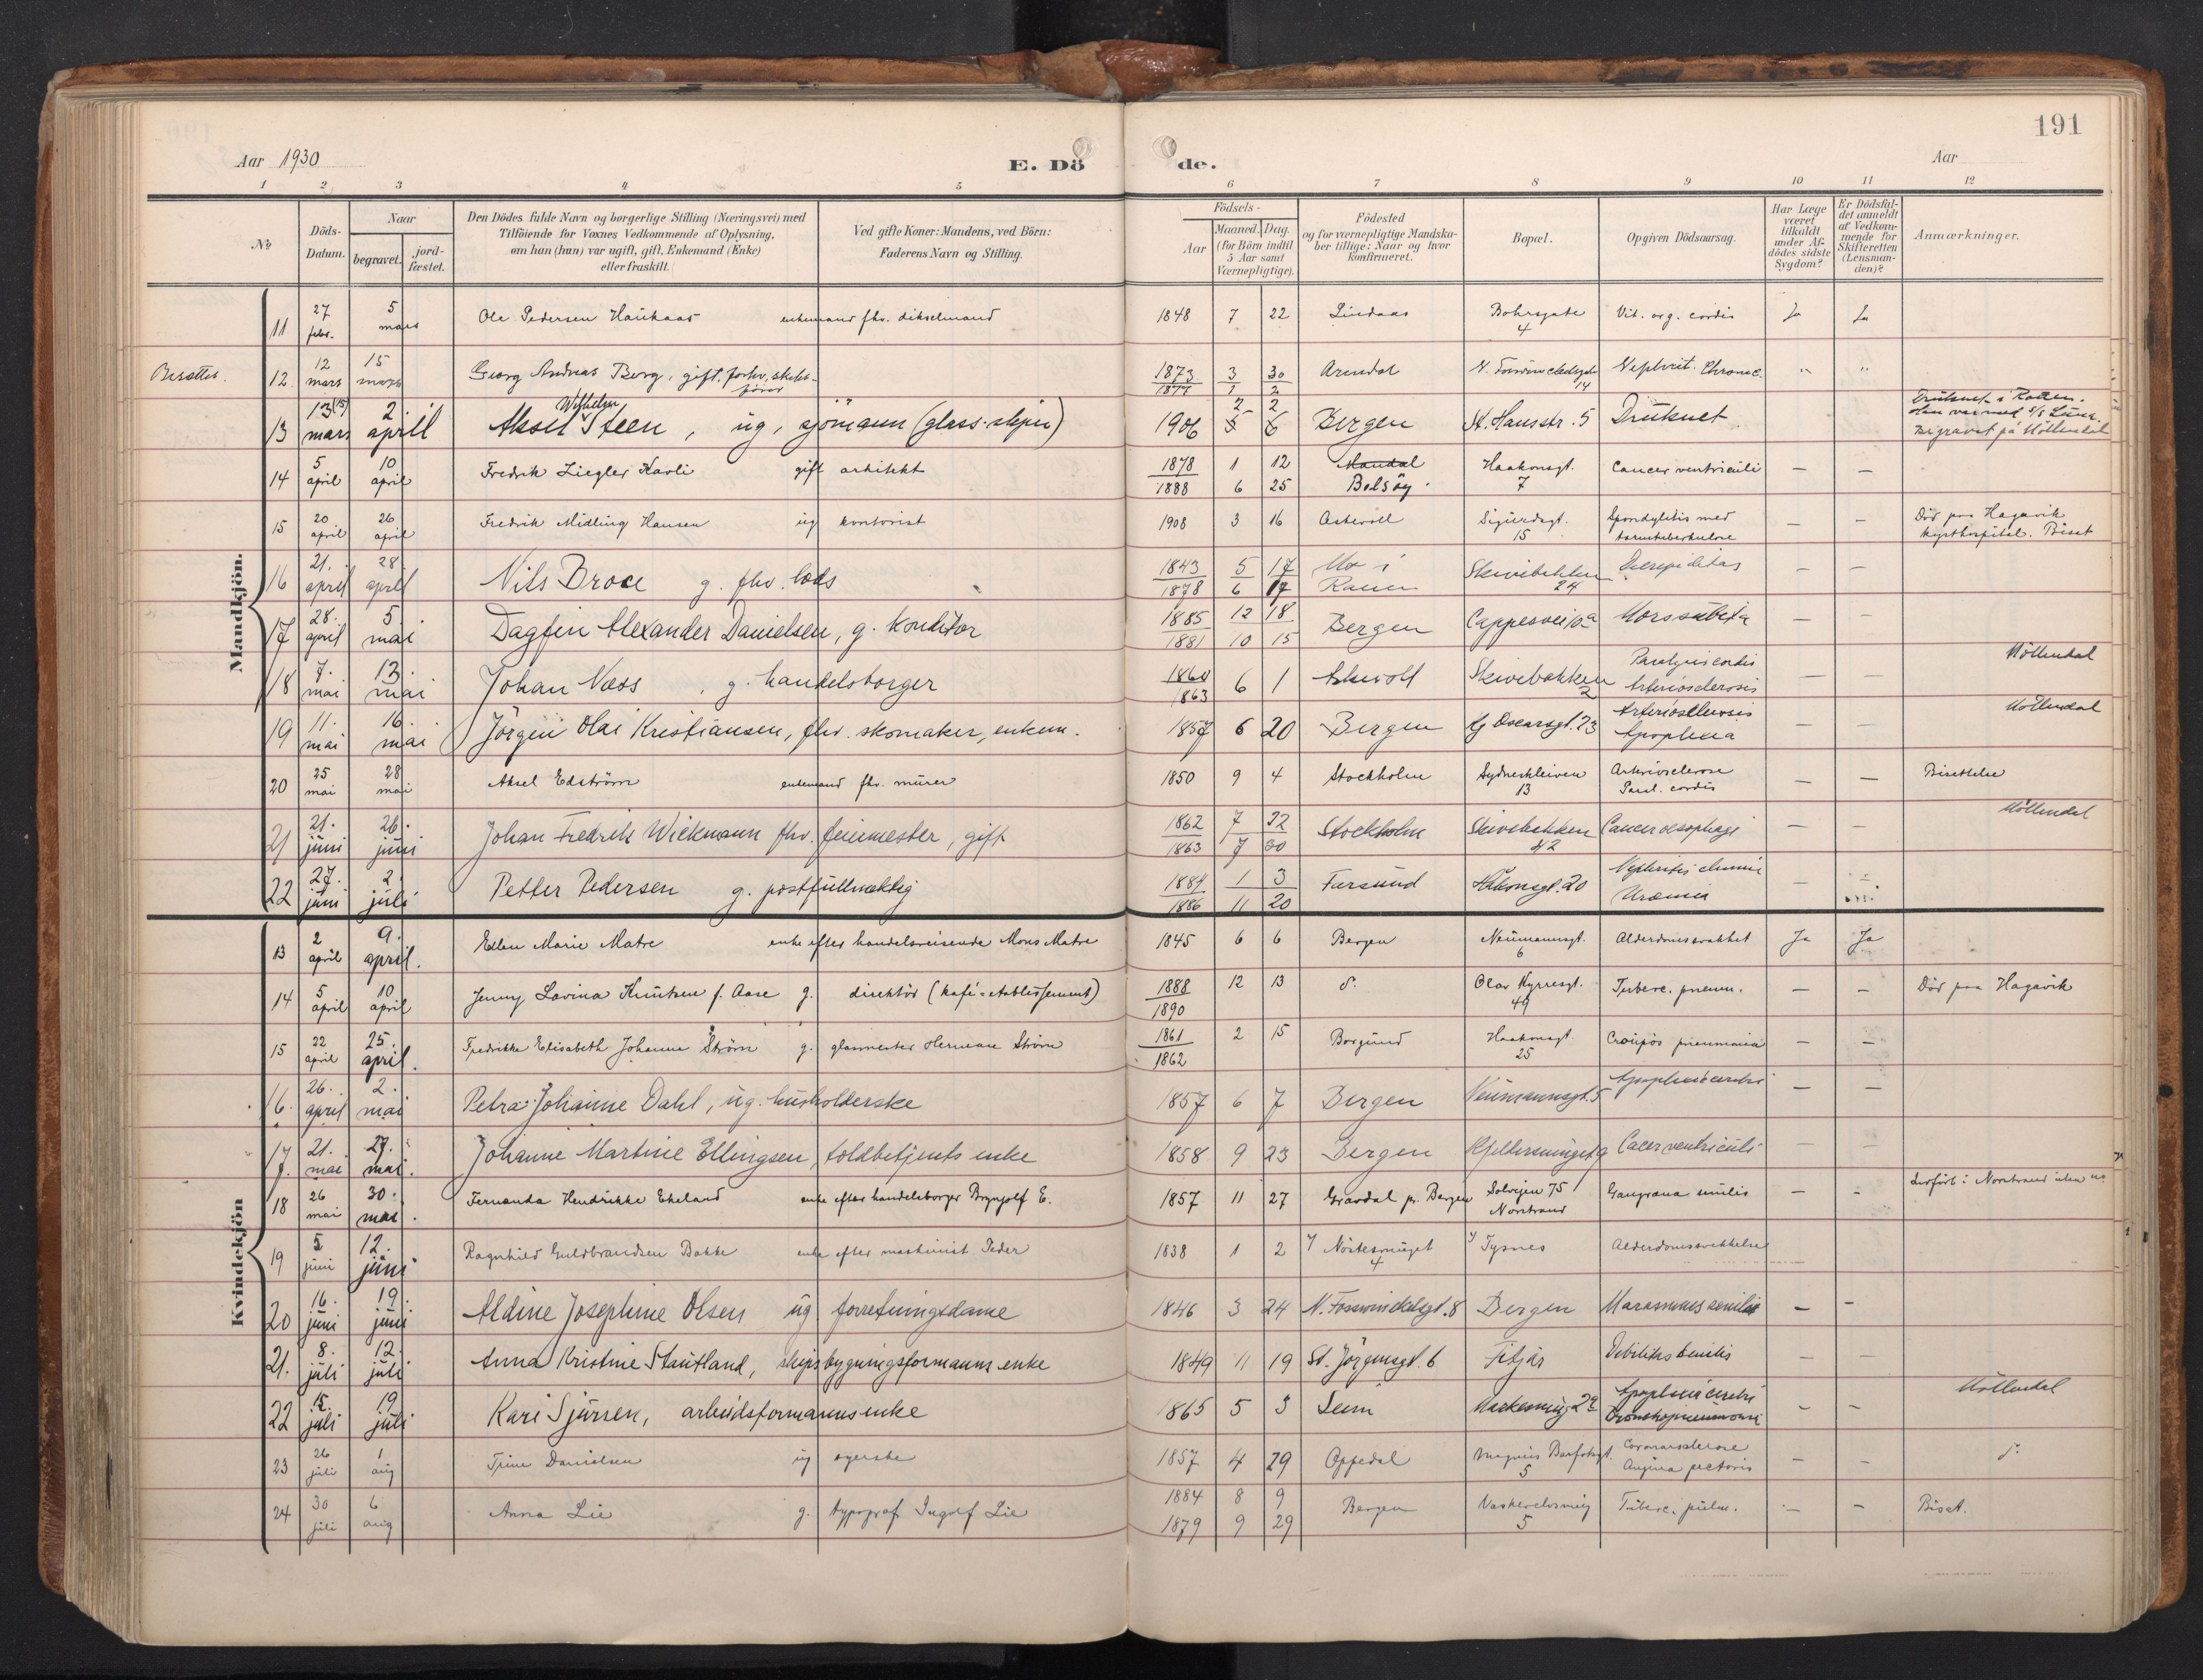 191
Aar 1930
E. Dö de.
Aar
1 2 3 4 5 6 7 8 9 10 11 12
No
Döds-Datum.
Naar
begravet.
jord-fæstet.
Den Dödes fulde Navn og borgerlige Stilling (Næringsvei) med
Tilföiende for Voxnes Vedkommende af Oplysning,
om han (hun) var ugift, gift, Enkemand (Enke)
eller fraskilt.
Ved gifte Koner: Mandens, ved Börn:
Faderens Navn og Stilling.
Födsels-
Aar
Maaned. Dag.
(for Börn indtil
5 Aar samt
Værnepligtige).
Födested
og for værnepligtige Mandska-
ber tillige: Naar og hvor
Konfirmeret.
Bopæl.
Opgiven Dödsaarsag.
Har Læge
været
tilkaldt
under Af-
dödes sidste
Sygdom?
Er Dödsfal-
det anmeldt
af Vedkom-
mende for
Skifteretten
(Lensman-
den)?
Anmærkninger.
Mandkjön.
11 27 febr. 5 mars Ole Pedersen Haukaas enkemand fhv. dikselmand 1848 7 22 Lindaas Bohrsgate 4 Vit. org. cordis Ja Ja
12 12 mars 15 mars Georg Andreas Berg, gift, forhv. skibsförer 1873 3 30 1877 1 2 Arendal N. Foswinckelsgate 14 Nephrit. Chronic. " "
13 13 (15) mars 2. april Aksel Wilhelm Steen, ug, sjömann (glass-skjær) 1906 2 2 5 6 Bergen St. Hansstr. 5 Druknet Druknet i
Begravet på Möllendal
14 5 april 10 april Fredrik Ziegler Kavli gift arkitekt 1878 1 12 1888 6 25 Mandal Bolsöy Haakonsgt. 7 Cancer ventriculi — —
15 20 april 26 april Fredrik Midling Hansen ug kontorist 1908 3 16 Askevoll Sigurdsgt. 15 Spondylitis med tarmtuberkulose — — Död paa Hagavik kysthospital. Biset
16 21. april 28 april Nils Broce g. fhv. lods 1843 5 17 1878 6 17 Mo i Ranen Skivebakken 24 — —
17 28. april 5. mai Dagfin Alexander Danielsen, g. konditor 1885 12 18 1881 10 15 Bergen Cappesvei 10a Mors subita — —
18 7. mai 13. mai Johan Næss, g. handelsborger 1860 1863 6 1 Askvoll Skivebakken 2 Paralysis cordis Arteriosclerosis — — Möllendal
19 11. mai 16. mai Jörgen Olai Kristiansen, fhv. skomaker, enkem. 1857 6 20 Bergen Kg Oscarsgt. 23 Arteriosclerosis Apoplexia — — Möllendal
20 25 mai 28 mai Aksel Edström enkemand fhv. murer 1850 9 4 Stockholm Sydneskleiven 13 Arteriosclerose Paral. cordis — — Bisettelse
21 21. juni 26. juni Johan Fredrik Wickmann fhv. feiemester, gift 1862 7 22 1863 7 30 Stockholm Skivebakken 42 Cancer oesophagi — — Möllendal
22 27. juni 2. juli Petter Pedersen g. postfullmektig 1884 1 3 1886 11 20 Farsund Håkonsgt. 20 Nephritis chronic Uræmia — —
Kvindekjön
13 2 april 9. april. Ellen Marie Matre enke efter handelsreisende Mons Matre 1845 6 6 Bergen Neumannsgt. 6 Alderdomssvakhet Ja Ja
14 5 april 10 april Jenny Lovina Knutsen f. Aase g. direktör (kafé-etablissement) 1888 12 13 1890 d. Olav Kyrresgt. 49 Tuberc. pneum. — — Död paa Hagavik
15 22 april 25. april. Fredrikke Elisabeth Johanne Ström g. glasmester Herman Ström 1861 2 15 1862 Borgund Haakonsgt. 25 Croupös pneumonia — —
16. 26. april 2. mai Petra Johanne Dahl, ug. husholderske 1857 6 7 Bergen Neumannsgt. 5 Apoplexia cerebri — —
17. 21. mai 27. mai. Johanne Martine Ellingsen, toldbetjents enke 1858 9 23 Bergen Cacer ventriculi — —
18 26 mai 30. mai. Fernanda Hendrikke Ekeland enke efter handelsborger Brynjolf E. 1857 11 27 Gravdal pr. Bergen Solveien 75 Norstrand Gangræna senilis — — Indfört i Norstrand uten no.
19 5 juni 12. juni Ragnhild Guldbrandsen Bakke enke efter maskinist Peder 1838 1 2 Nöstesmuget 4 Tysnes Alderdomssvekkelse
20 16. juni 19. juni Aldine Josephine Olsen ug forretningsdame 1846 3 24 N. Foswinckelsgt. 8 Bergen Marasmus senilis — —
21. 8. juli 12. juli Anna Kristine Stautland, skipsbygningsformanns enke 1849 11 19 St. Jörgensgt. 6 Fitjar Debilitas senilis — —
22 15. juli 19. juli Kari Sjursen, arbeidsformanns enke 1865 5 3 Leim 2a Apoplexia cerebri Bronchopneumoni — — Möllendal
23 26 juli 1 aug Trine Danielsen ug syerske 1857 4 29 Oppedal Magnus Barfotsgt. 5 Coronarsclerose Angina pectoris — — d.
24 30 juli 6 aug Anna Lie g. typograf Ingolf Lie 1884 8 9 1879 9 29 Bergen Vaskerelvsmug 5 Tuberc. pulm. — — Biset.